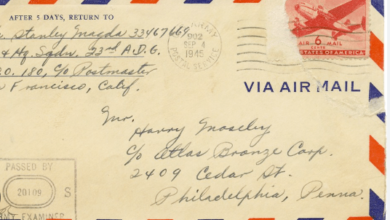 AFTER 5 DAYS, RETURN TO
Stanley Mazda 33467669
& Hq. Sqdn. 23rd A.D.G.
P.O. 180, c/o Postmaster
Francisco, Calif.
SEP
194
6
AIR MAIL
UNITED STATES OF AMERICA
VIA AIR MAIL
Mr.
Harry Moseley
c/o Atlas Bronze Corp.
2409 Cedar St.
Philadelphia, Penna.
PASSED BY
20109
S
EXAMINER